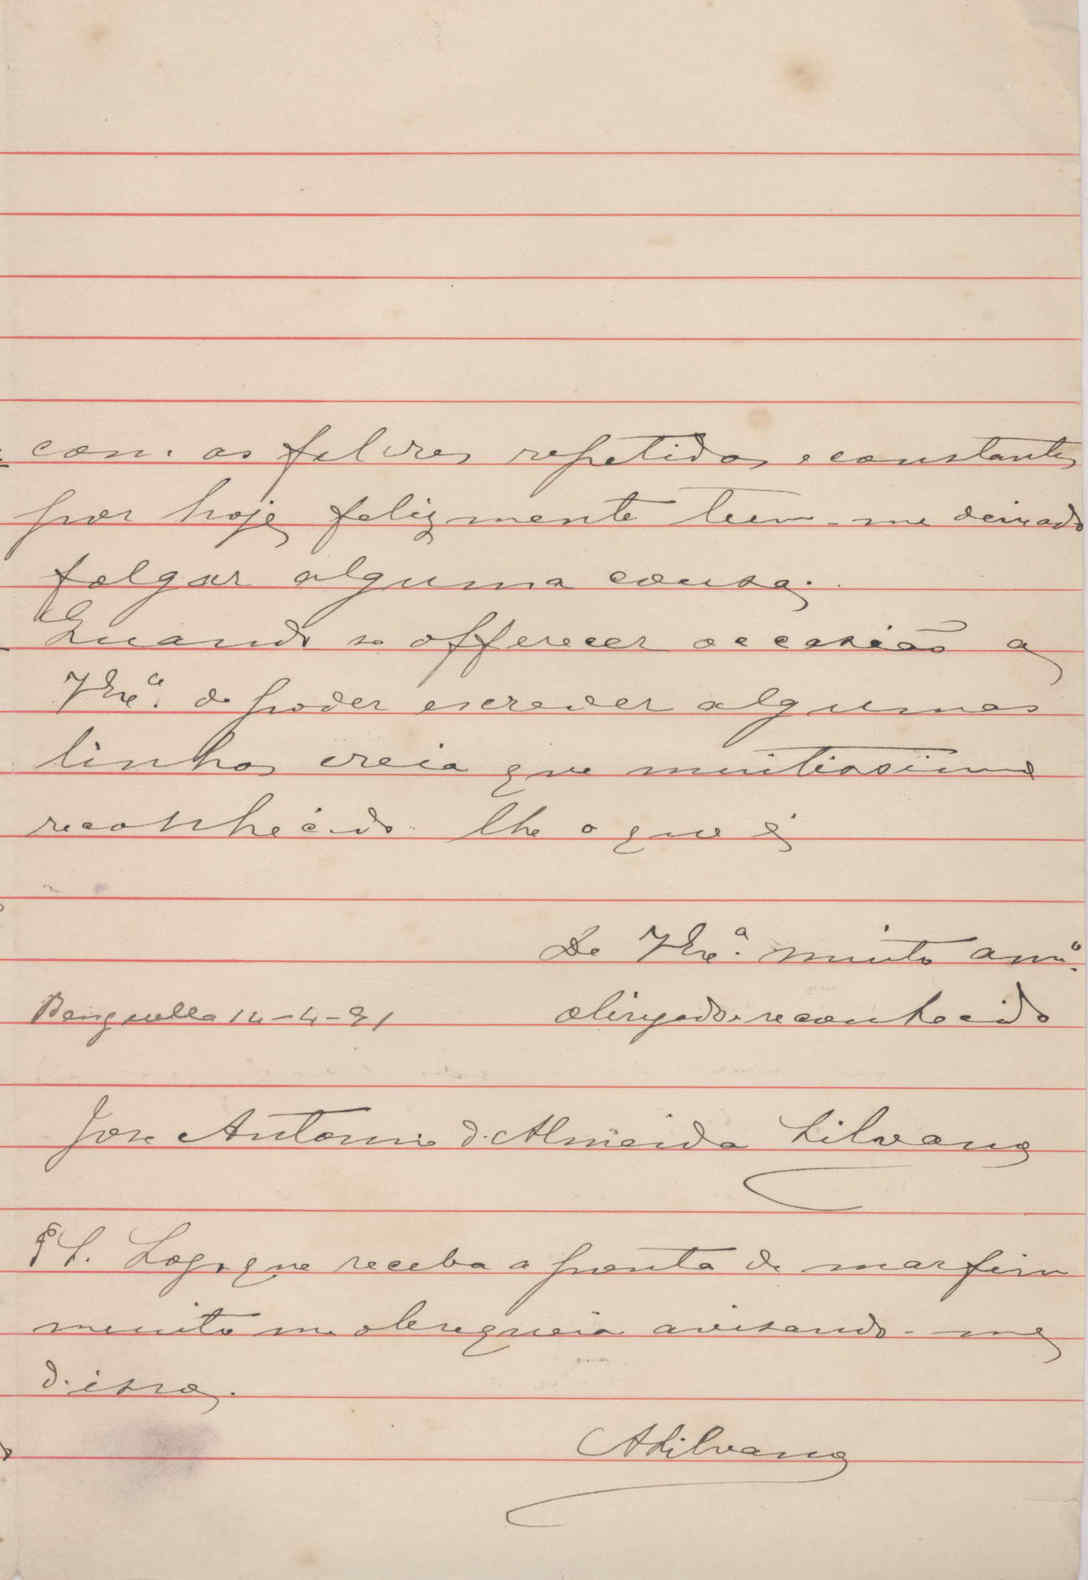 com. as febres repetidas e constantes
por hoje felizmente teem-me deixado
folgar alguma cousa.
Quando se offerecer occasião a
VExª. de poder escrever algumas
linhas creia que muitissimo
reconhecido lhe o que é
De VExª. muito amº.
Benguella 14-4-91 obrigado e reconhecido
Jose Antonio d'Almeida Silvano
PS. Logo que receba a ponta de marfim
muito me obsequeia avisando-me
d'isso.
ASilvano